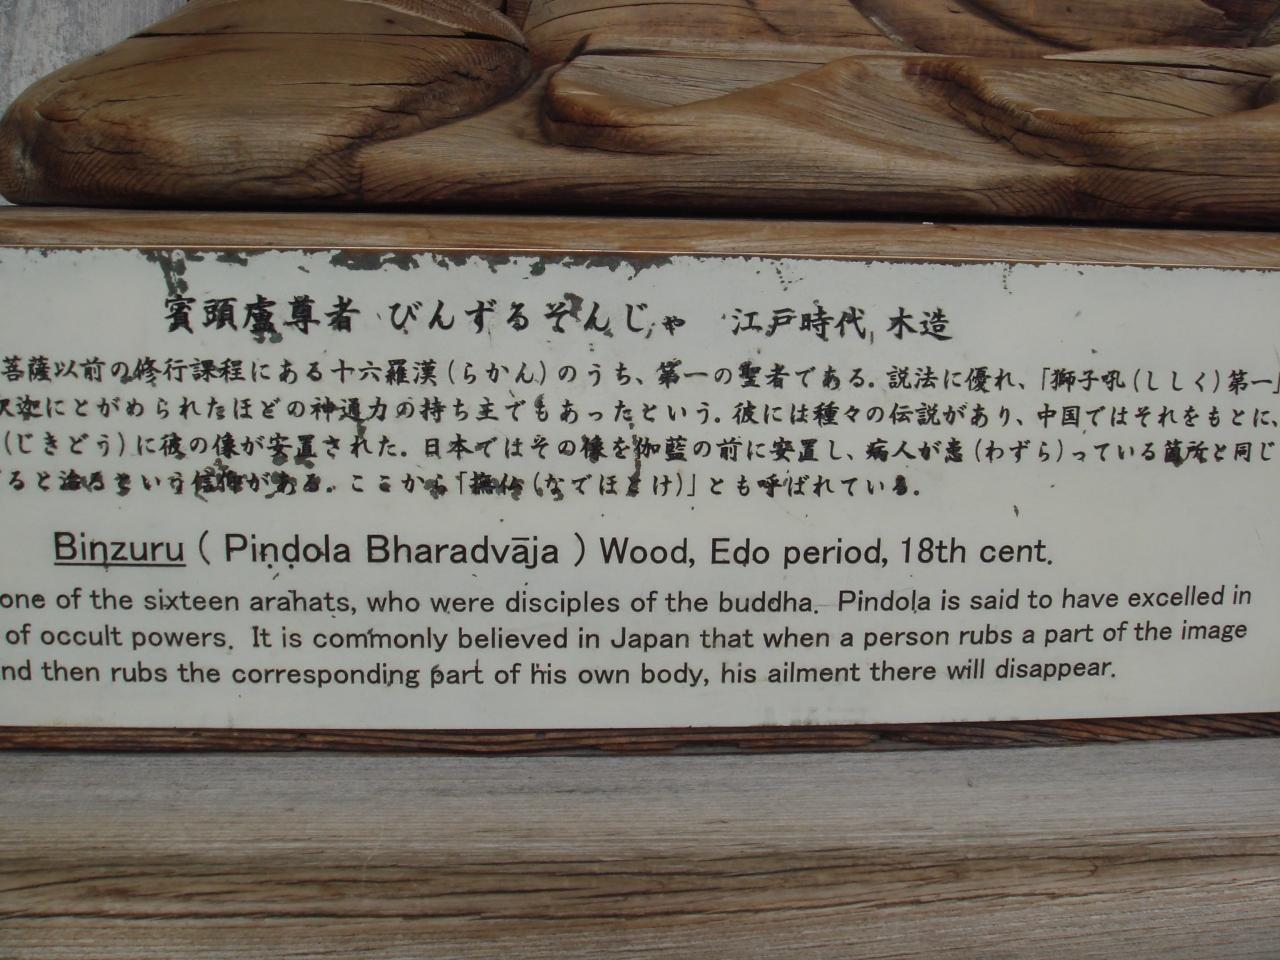 賓頭盧尊者 びんずるそんじゃ 江戸時代 木造
菩薩以前の修行課程にある十六羅漢(らかん)のうち、第一の聖者である。説法に優れ、「獅子吼(ししく)第一」
釈迦にとがめられたほどの神通力の持ち主でもあったという。彼には種々の伝説があり、中国ではそれをもとに、
(じきどう)に彼の像が安置された。日本ではその像を伽藍の前に安置し、病人が患(わずら)っている箇所と同じ
ると治るという信仰がある。ここから「撫仏(なでほとけ)」とも呼ばれている。
Binzuru ( Piṇḍola Bharadvāja ) Wood, Edo period, 18th cent.
one of the sixteen arahats, who were disciples of the buddha. Pindola is said to have excelled in
of occult powers. It is commonly believed in Japan that when a person rubs a part of the image
nd then rubs the corresponding part of his own body, his ailment there will disappear.